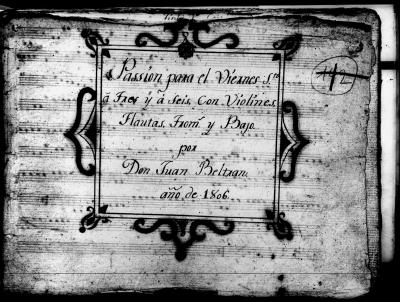 Passión para el Viernes S.to
á Tres y á Seis, Con Violines
Flautas, Trom.s y Bajo.
por
Don Juan Beltran.
año de 1806.